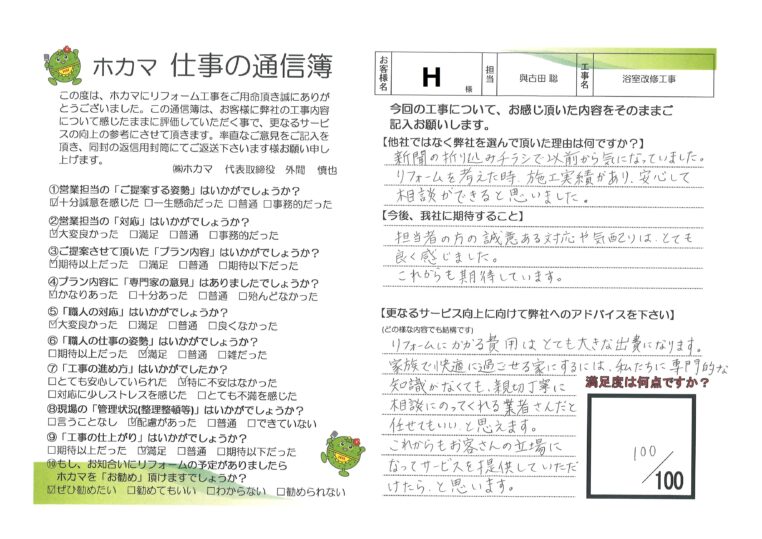 ホカマ 仕事の通信簿
この度は、ホカマにリフォーム工事をご用命頂き誠にありが
とうございました。この通信簿は、お客様に弊社の工事内容
について感じたままに評価していただく事で、更なるサービ
スの向上の参考にさせて頂きます。率直なご意見をご記入を
頂き、同封の返信用封筒にてご返送下さいます様お願い申し
上げます。
㈱ホカマ 代表取締役 外間 慎也
①営業担当の「ご提案する姿勢」はいかがでしょうか?
☑十分誠意を感じた □一生懸命だった □普通 □事務的だった
②営業担当の「対応」はいかがでしょうか?
☑大変良かった □満足 □普通 □事務的だった
③ご提案させて頂いた「プラン内容」はいかがでしょうか?
☑期待以上だった □満足 □普通 □期待以下だった
④プラン内容に「専門家の意見」はありましたでしょうか?
☑かなりあった □十分あった □普通 □殆んどなかった
⑤「職人の対応」はいかがでしょうか?
☑大変良かった □満足 □普通 □良くなかった
⑥「職人の仕事の姿勢」はいかがでしょうか?
□期待以上だった ☑満足 □普通 □雑だった
⑦「工事の進め方」はいかがでしたか?
□とても安心していられた ☑特に不安はなかった
□対応に少しストレスを感じた □とても不満を感じた
⑧現場の「管理状況(整理整頓等)」はいかがでしょうか?
□言うことなし ☑配慮があった □普通 □できていない
⑨「工事の仕上がり」はいかがでしょうか?
□期待以上だった ☑満足 □普通 □期待以下だった
⑩もし、お知合いにリフォームの予定がありましたら
ホカマを「お勧め」頂けますでしょうか?
☑ぜひ勧めたい □勧めてもいい □わからない □勧められない
お客様名 H 様 担当 與古田 聡 工事名 浴室改修工事
今回の工事について、お感じ頂いた内容をそのままご
記入お願いします。
【他社ではなく弊社を選んで頂いた理由は何ですか?】
新聞の折り込みチラシで以前から気になっていました。
リフォームを考えた時、施工実績があり、安心して
相談ができると思いました。
【今後、我社に期待すること】
担当者の方の誠意ある対応や気配りは、とても
良く感じました。
これからも期待しています。
【更なるサービス向上に向けて弊社へのアドバイスを下さい】
(どの様な内容でも結構です)
リフォームにかかる費用は、とても大きな出費になります。
家族で快適に過ごせる家にするには、私たちに専門的な
知識がなくても、親切丁寧に
相談にのってくれる業者さんだと
任せてもいい、と思えます。
これからもお客さんの立場に
なってサービスを提供していただ
けたら、と思います。
満足度は何点ですか?
100/100